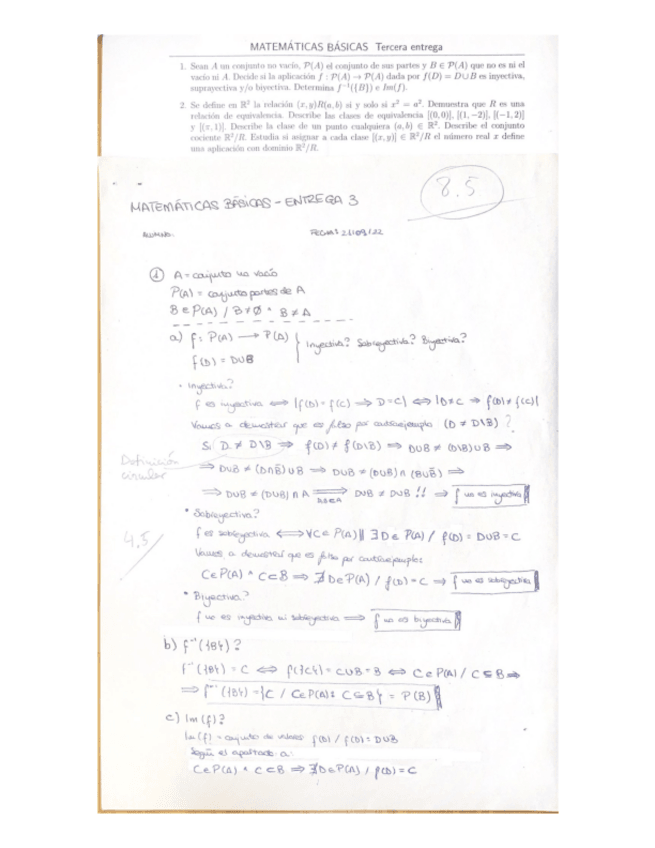 MATEMÁTICAS BÁSICAS Tercera entrega
1. Sean A un conjunto no vacío, P(A) el conjunto de sus partes y B ∈ P(A) que no es ni el
vacío ni A. Decide si la aplicación f : P(A) → P(A) dada por f(D) = D∪B es inyectiva,
suprayectiva y/o biyectiva. Determina f⁻¹({B}) e Im(f).
2. Se define en ℝ² la relación (x, y)R(a, b) si y solo si x² = a². Demuestra que R es una
relación de equivalencia. Describe las clases de equivalencia [(0,0)], [(1,−2)], [(−1,2)]
y [(π,1)]. Describe la clase de un punto cualquiera (a, b) ∈ ℝ². Describe el conjunto
cociente ℝ²/R. Estudia si asignar a cada clase [(x, y)] ∈ ℝ²/R el número real x define
una aplicación con dominio ℝ²/R.
8.5
MATEMÁTICAS BÁSICAS - ENTREGA 3
ALUMNO: FECHA: 21/09/22
① A = conjunto no vacío
P(A) = conjunto partes de A
B ∈ P(A) / B ≠ Ø ^ B ≠ A
a) f: P(A) → P(A)
f(D) = D∪B
Inyectiva? Sobreyectiva? Biyectiva?
• Inyectiva?
f es inyectiva ⟺ |f(D) = f(C) ⟹ D = C| ⟺ |D ≠ C ⟹ f(D) ≠ f(C)|
Vamos a demostrar que es falso por contraejemplo (D ≠ D\B) ?
Si D ≠ D\B ⟹ f(D) ≠ f(D\B) ⟹ D∪B ≠ (D\B)∪B ⟹
Definición circular
⟹ D∪B ≠ (D∩B̄)∪B ⟹ D∪B ≠ (D∪B)∩(B∪B̄) ⟹
⟹ D∪B ≠ (D∪B)∩A ⟹ D∪B ≠ D∪B !! ⟹ f no es inyectiva
• Sobreyectiva?
4.5
f es sobreyectiva ⟺ ∀C ∈ P(A) || ∃D ∈ P(A) / f(D) = D∪B = C
Vamos a demostrar que es falso por contraejemplo:
C ∈ P(A) ^ C ⊂ B ⟹ ∄D ∈ P(A) / f(D) = C ⟹ f no es sobreyectiva
• Biyectiva?
f no es inyectiva ni sobreyectiva ⟹ f no es biyectiva
b) f⁻¹({B}) ?
f⁻¹({B}) = C ⟺ f({C}) = C∪B = B ⟺ C ∈ P(A) / C ⊆ B ⟹
⟹ f⁻¹({B}) = {C / C ∈ P(A) : C ⊆ B} = P(B)
c) Im(f)?
Im(f) = conjunto de valores f(D) / f(D) = D∪B
Según el apartado a:
C ∈ P(A) ^ C ⊂ B ⟹ ∄D ∈ P(A) / f(D) = C